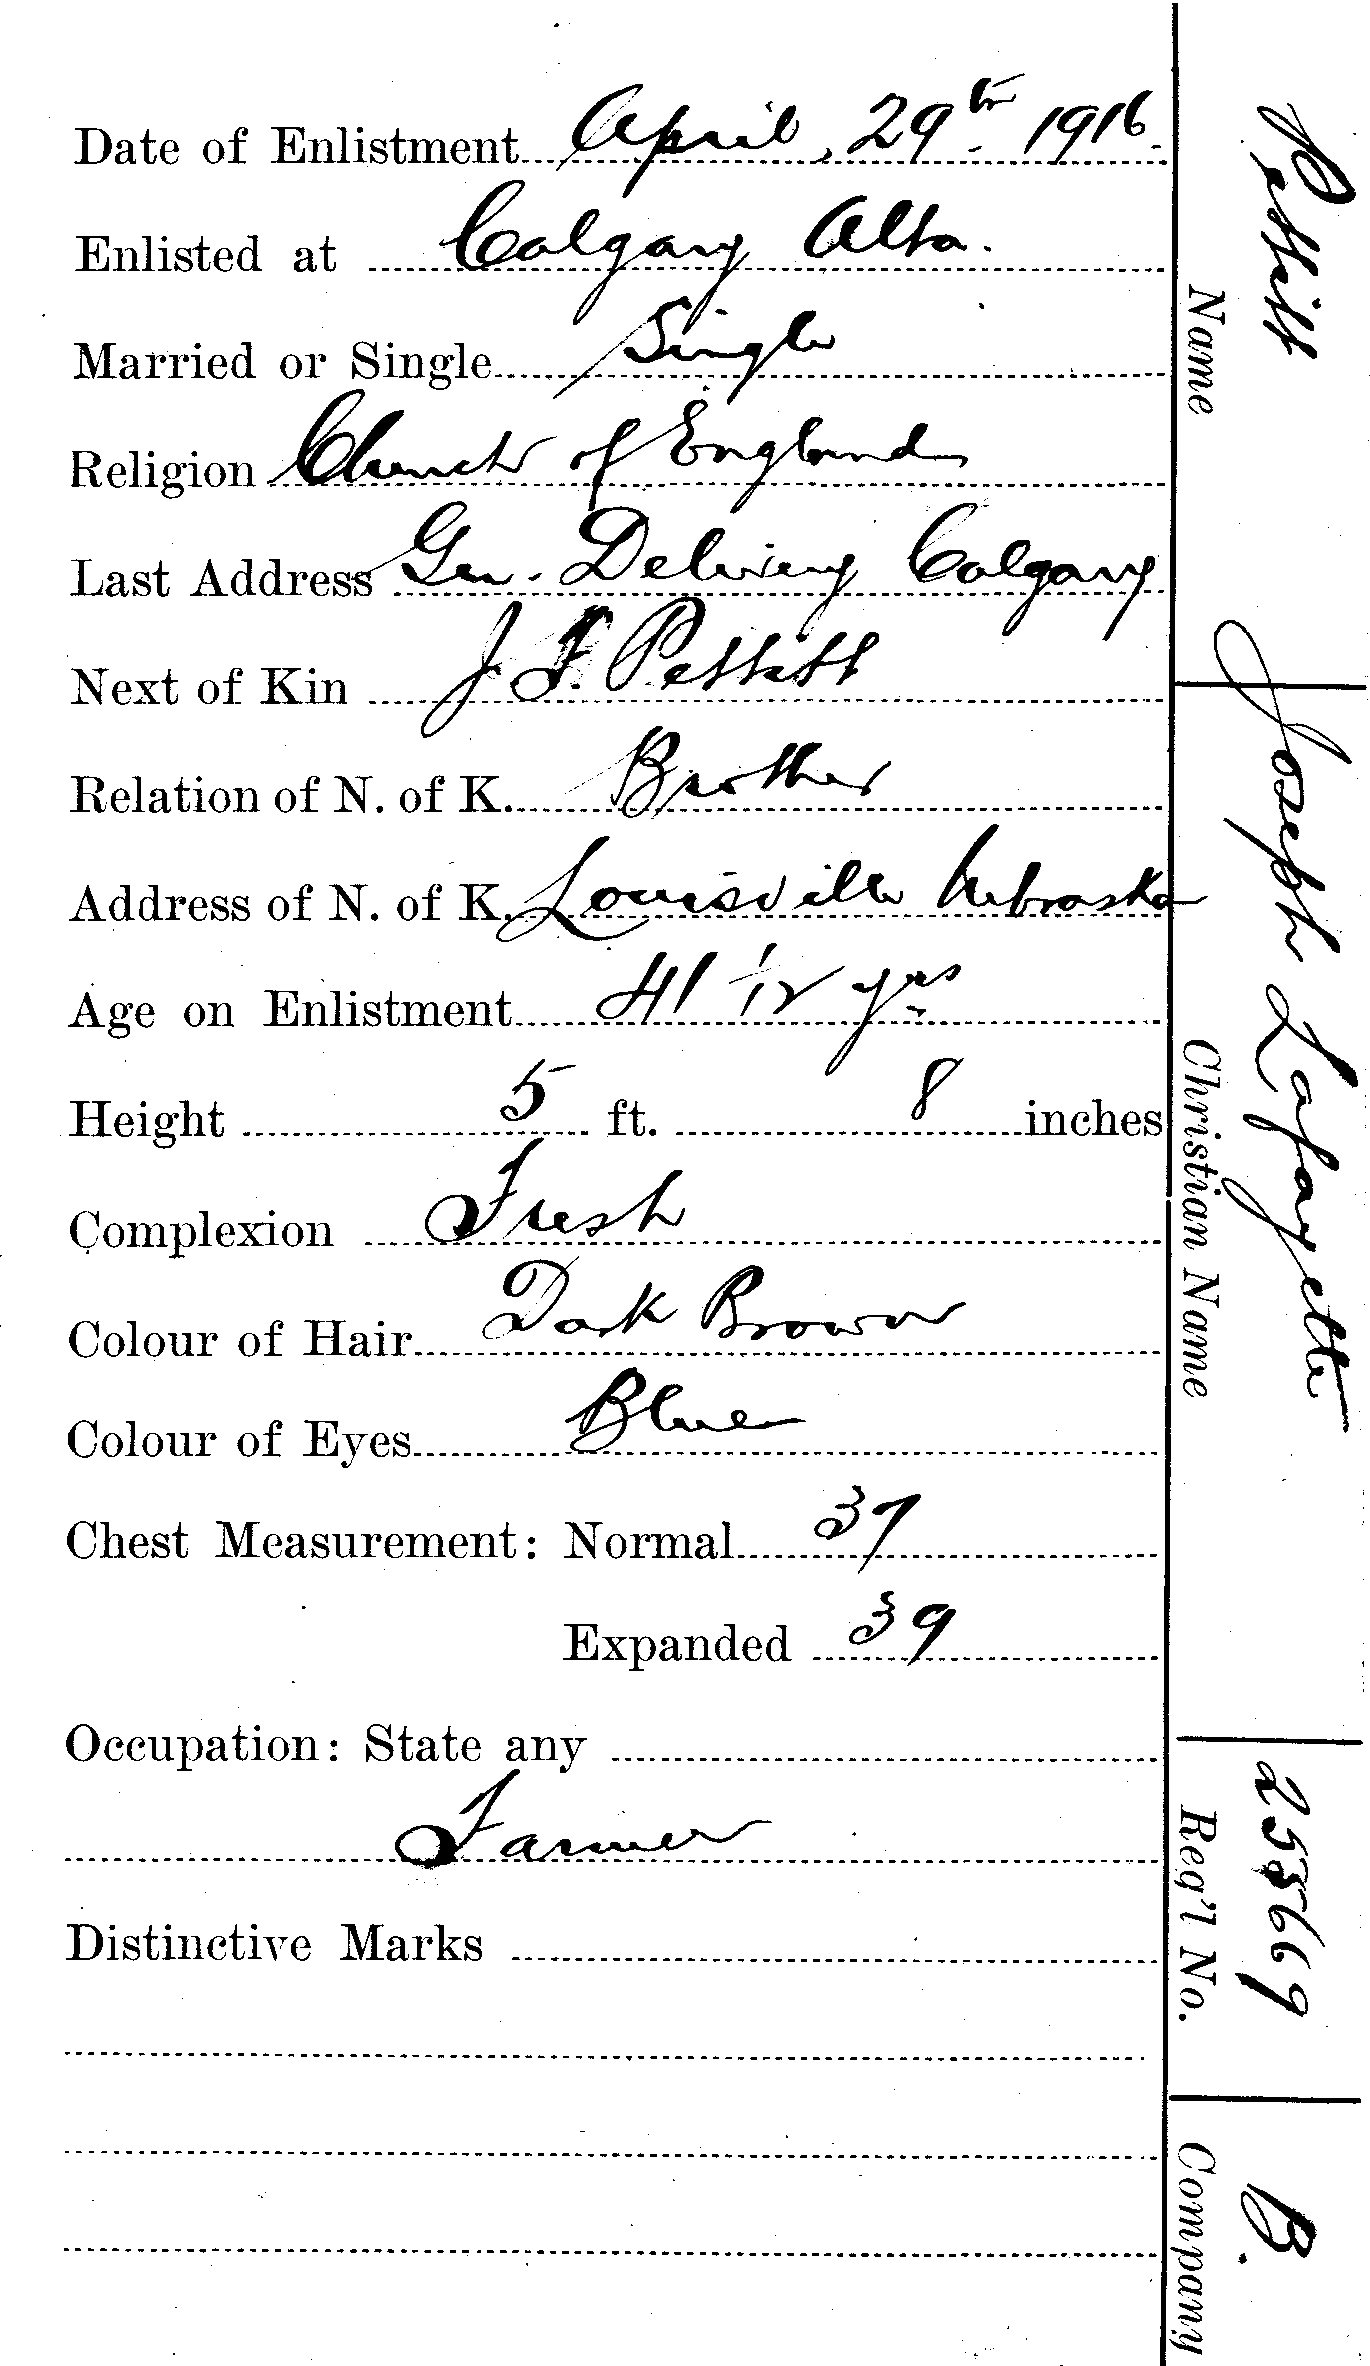 Date of Enlistment April, 29th 1916.
Enlisted at Calgary Alta.
Married or Single Single
Religion Church of England
Last Address Gen. Delivery Calgary
Next of Kin J. F. Pettitt
Relation of N. of K. Brother
Address of N. of K. Louisville Nebraska
Age on Enlistment 41 1/12 yrs
Height 5 ft. 8 inches
Complexion Fresh
Colour of Hair Dark Brown
Colour of Eyes Blue
Chest Measurement: Normal 37
Expanded 39
Occupation: State any
Farmer
Distinctive Marks
Pettitt
Name
Joseph Lafayette
Christian Name
Req'l No.
B.
Company